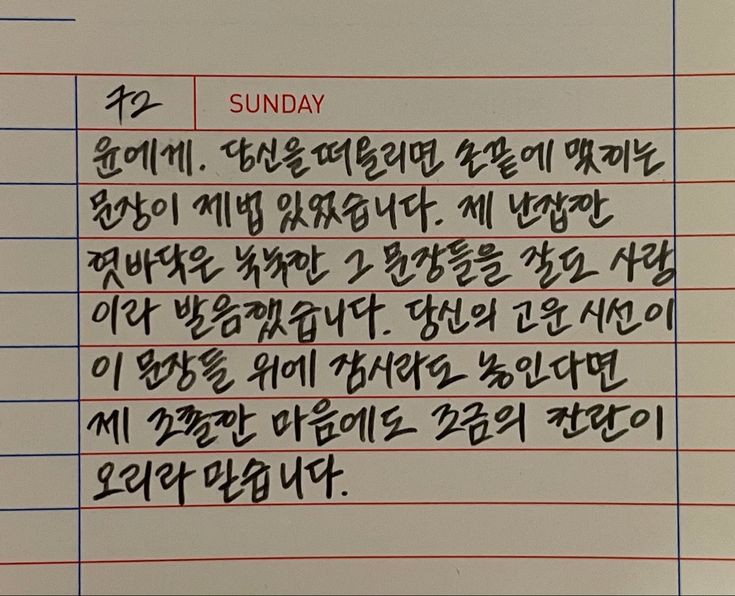 72 SUNDAY
윤에게. 당신을 떠올리면 손끝에 맺히는
문장이 제법 있었습니다. 제 난잡한
혓바닥은 눅눅한 그 문장들을 잘도 사랑
이라 발음했습니다. 당신의 고운 시선이
이 문장들 위에 잠시라도 놓인다면
제 조촐한 마음에도 조금의 찬란이
오리라 믿습니다.